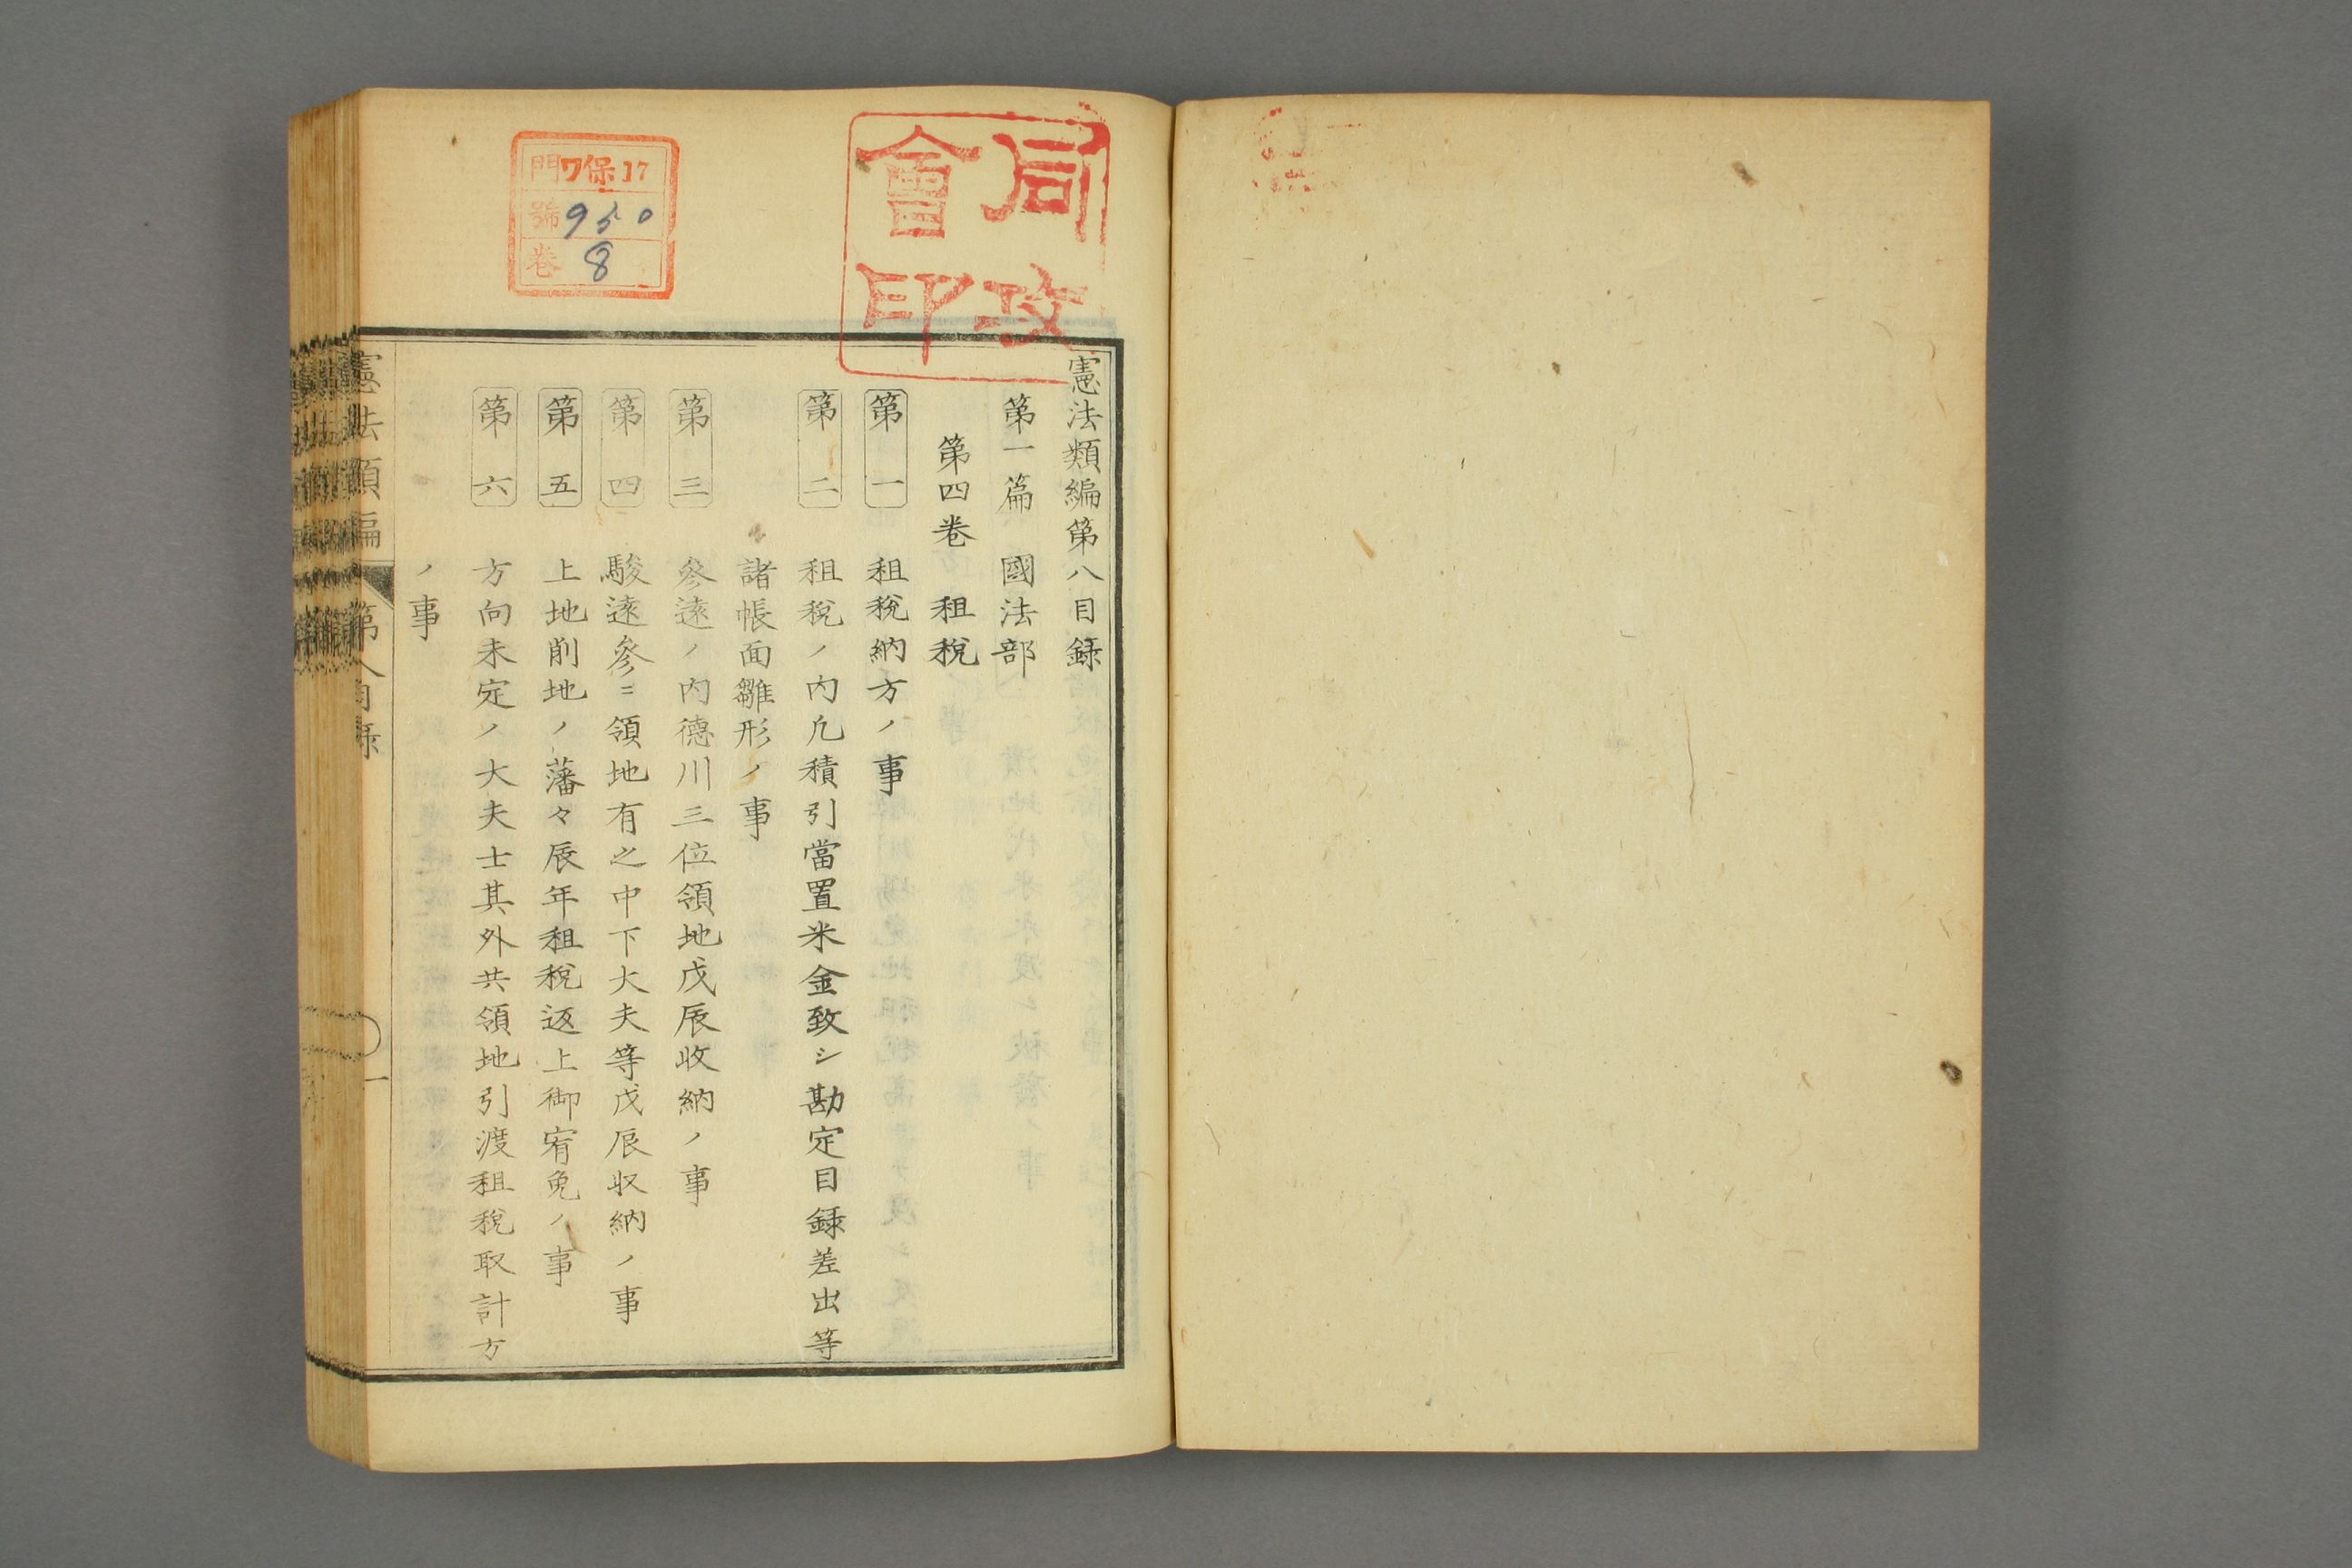 憲法類編第八目録
第一篇　國法部
第四巻　租税
第一　租税納方ノ事
第二　租税ノ内凡積引當置米金致シ勘定目録差出等
諸帳面雛形ノ事
第三　參遠ノ内德川三位領地戊辰收納ノ事
第四　駿遠參ニ領地有之中下大夫等戊辰収納ノ事
第五　上地削地ノ藩々辰年租税返上御宥免ノ事
第六　方向未定ノ大夫士其外共領地引渡租税取計方
ノ事
憲法類編　第八目録　一
同攻
會印
門ワ保17
號950
巻8